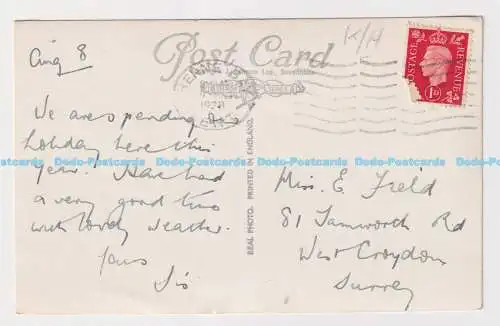 Aug 8
Post Card
K/H
POSTAGE REVENUE
1D
We are spending our
holiday here this
year. Have had
a very good time
with lovely weather.
Yours
Sis
REAL PHOTO. PRINTED IN ENGLAND.
Miss. E. Field
81 Tamworth Rd
West Croydon
Surrey
Dodo-Postcards Dodo-Postcards Dodo-Postcards Dodo-Postcards Dodo-Postcards Dodo-Postcards